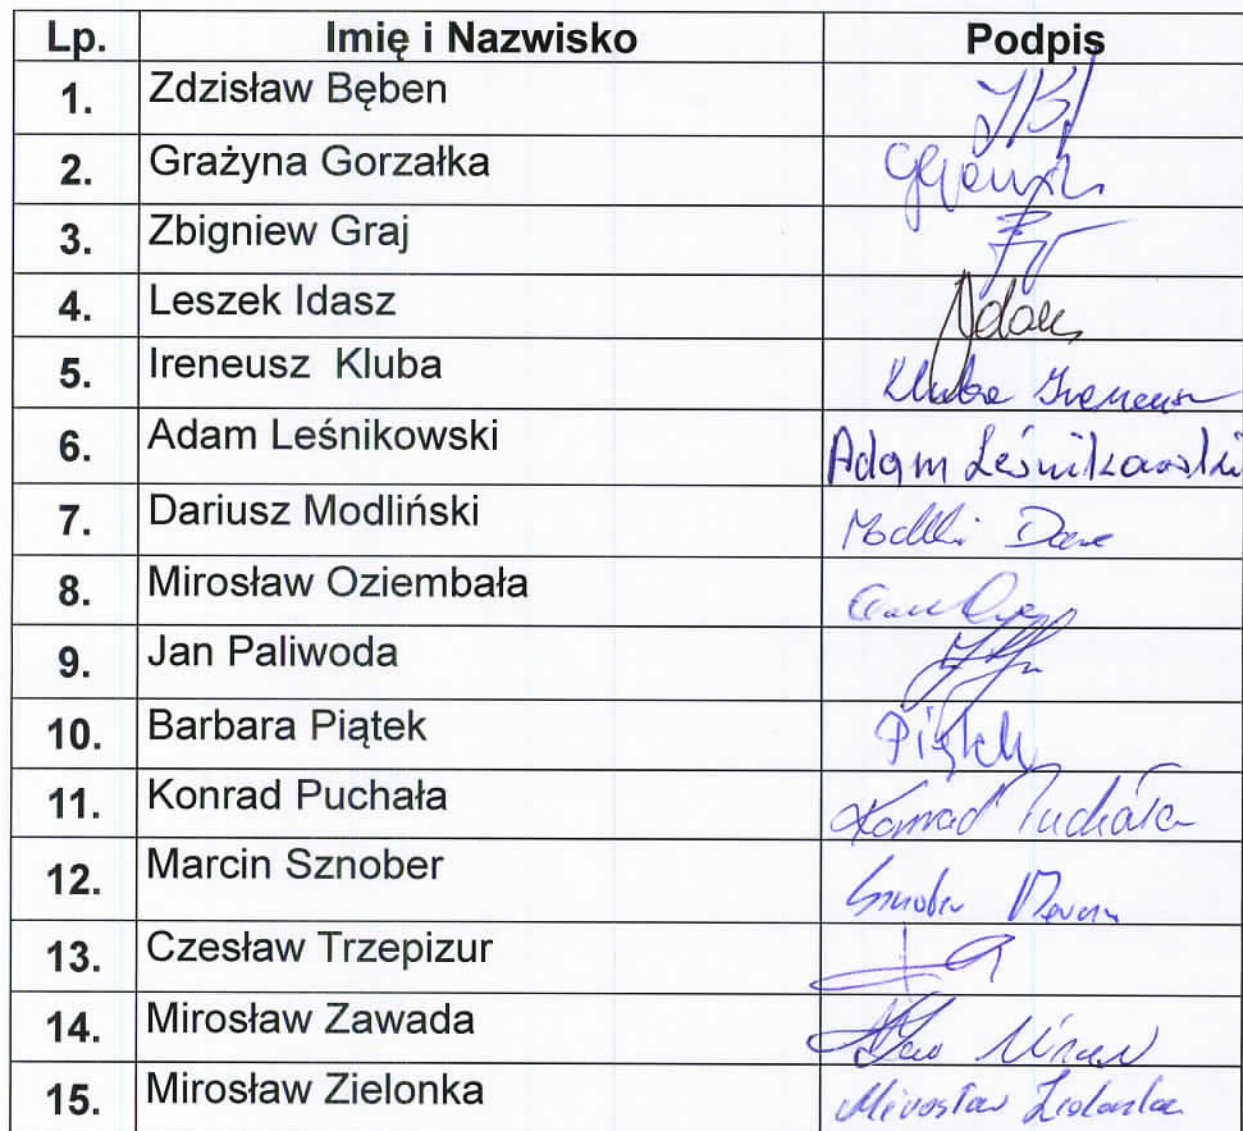 Lp. Imię i Nazwisko Podpis
1. Zdzisław Bęben
2. Grażyna Gorzałka
3. Zbigniew Graj
4. Leszek Idasz
5. Ireneusz Kluba Kluba Ireneusz
6. Adam Leśnikowski Adam Leśnikowski
7. Dariusz Modliński
8. Mirosław Oziembała
9. Jan Paliwoda
10. Barbara Piątek Piątek
11. Konrad Puchała Konrad Puchała
12. Marcin Sznober
13. Czesław Trzepizur
14. Mirosław Zawada
15. Mirosław Zielonka Mirosław Zielonka